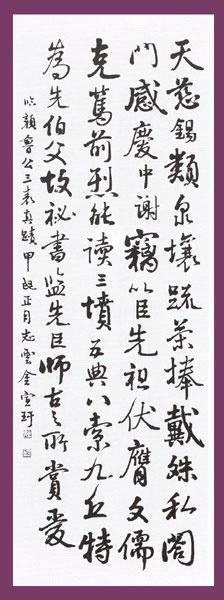 天慈錫類泉壤疏榮捧戴殊私闔
門感慶中謝竊以臣先祖伏膺文儒
克篤前烈能讀三墳五典八索九丘特
為先伯父故祕書監先臣師古之所賞愛
顏魯公三表真蹟甲
正月志雲金宣